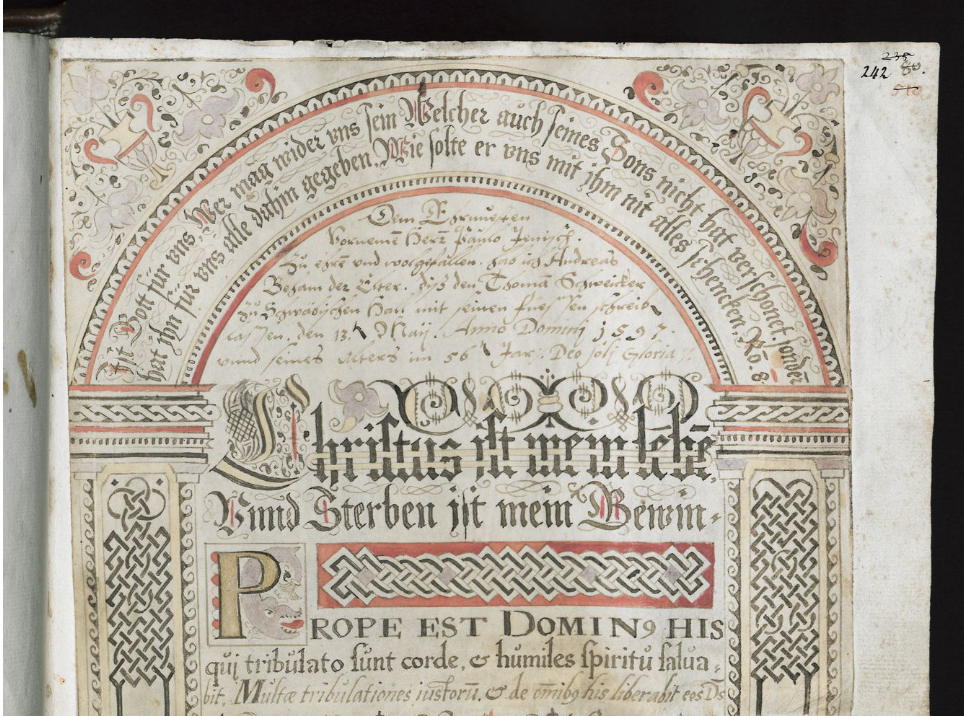 235
242 80.
Ist Gott für vns Wer mag wider vns sein Welcher auch seines Sons nicht hat verschonet sonderͅ
hat ihn für vns alle dahin gegeben Wie solte er vns mit ihm nit alles schencken. Rō. 8.
Dem Ernuesten
Vornemē Herr Paulo Jenisch.
Zu ehrē vnd wolgefallen, hab ich Andreas
der Elter, diß den Thomā Schweicker
zu Schwäbischen Hall mit seinen Fuessen schreibē
lassen, den 13. Maij. Anno Dominj 1597.
vnnd seines Alters im 56 Jar. Deo solj Gloria
Christus ist mein lebē
Vnnd Sterben jst mein Gewin
PROPE EST DOMINꝰ HIS
qui tribulato sunt corde, & humiles spiritu salua,
bit. Multæ tribulationes iustorū, & de oīnibꝰ his liberabit eos Ds̄